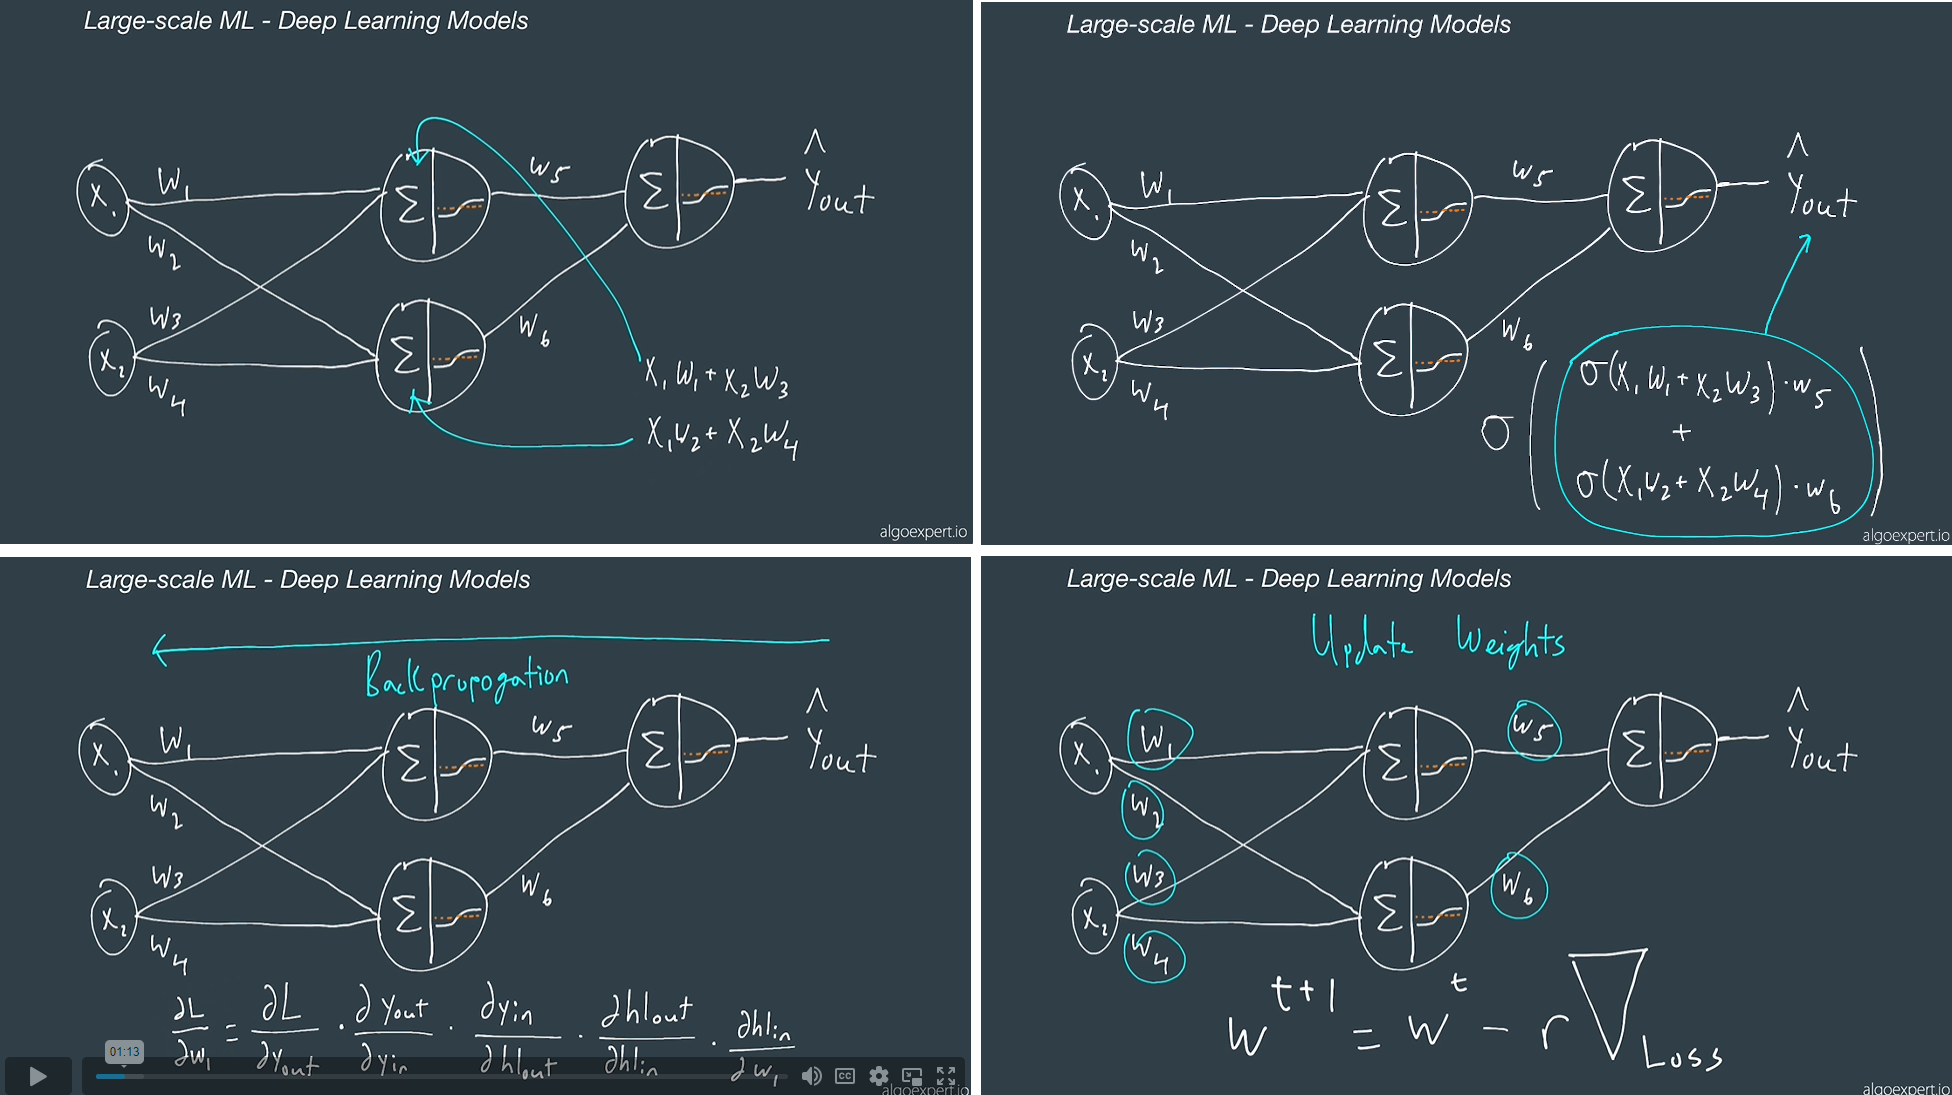 Large-scale ML - Deep Learning Models
X₁ W₁ W₅ Ŷout
W₂
W₃
X₂ W₆
W₄
X₁W₁ + X₂W₃
X₁W₂ + X₂W₄
Σ Σ Σ
algoexpert.io
Large-scale ML - Deep Learning Models
X₁ W₁ W₅ Ŷout
W₂
W₃
X₂ W₆
W₄
Σ Σ Σ
σ ( σ(X₁W₁ + X₂W₃) · W₅
+
σ(X₁W₂ + X₂W₄) · W₆ )
algoexpert.io
Large-scale ML - Deep Learning Models
Backpropogation
X₁ W₁ W₅ Ŷout
W₂
W₃
X₂ W₆
W₄
Σ Σ Σ
∂L/∂W₁ = ∂L/∂Yout · ∂Yout/∂yin · ∂yin/∂h1out · ∂h1out/∂h1in · ∂h1in/∂W₁
01:13
CC
algoexpert.io
Large-scale ML - Deep Learning Models
Update Weights
X₁ W₁ W₅ Ŷout
W₂
W₃
X₂ W₆
W₄
Σ Σ Σ
W^t+1 = W^t - r ∇Loss
algoexpert.io